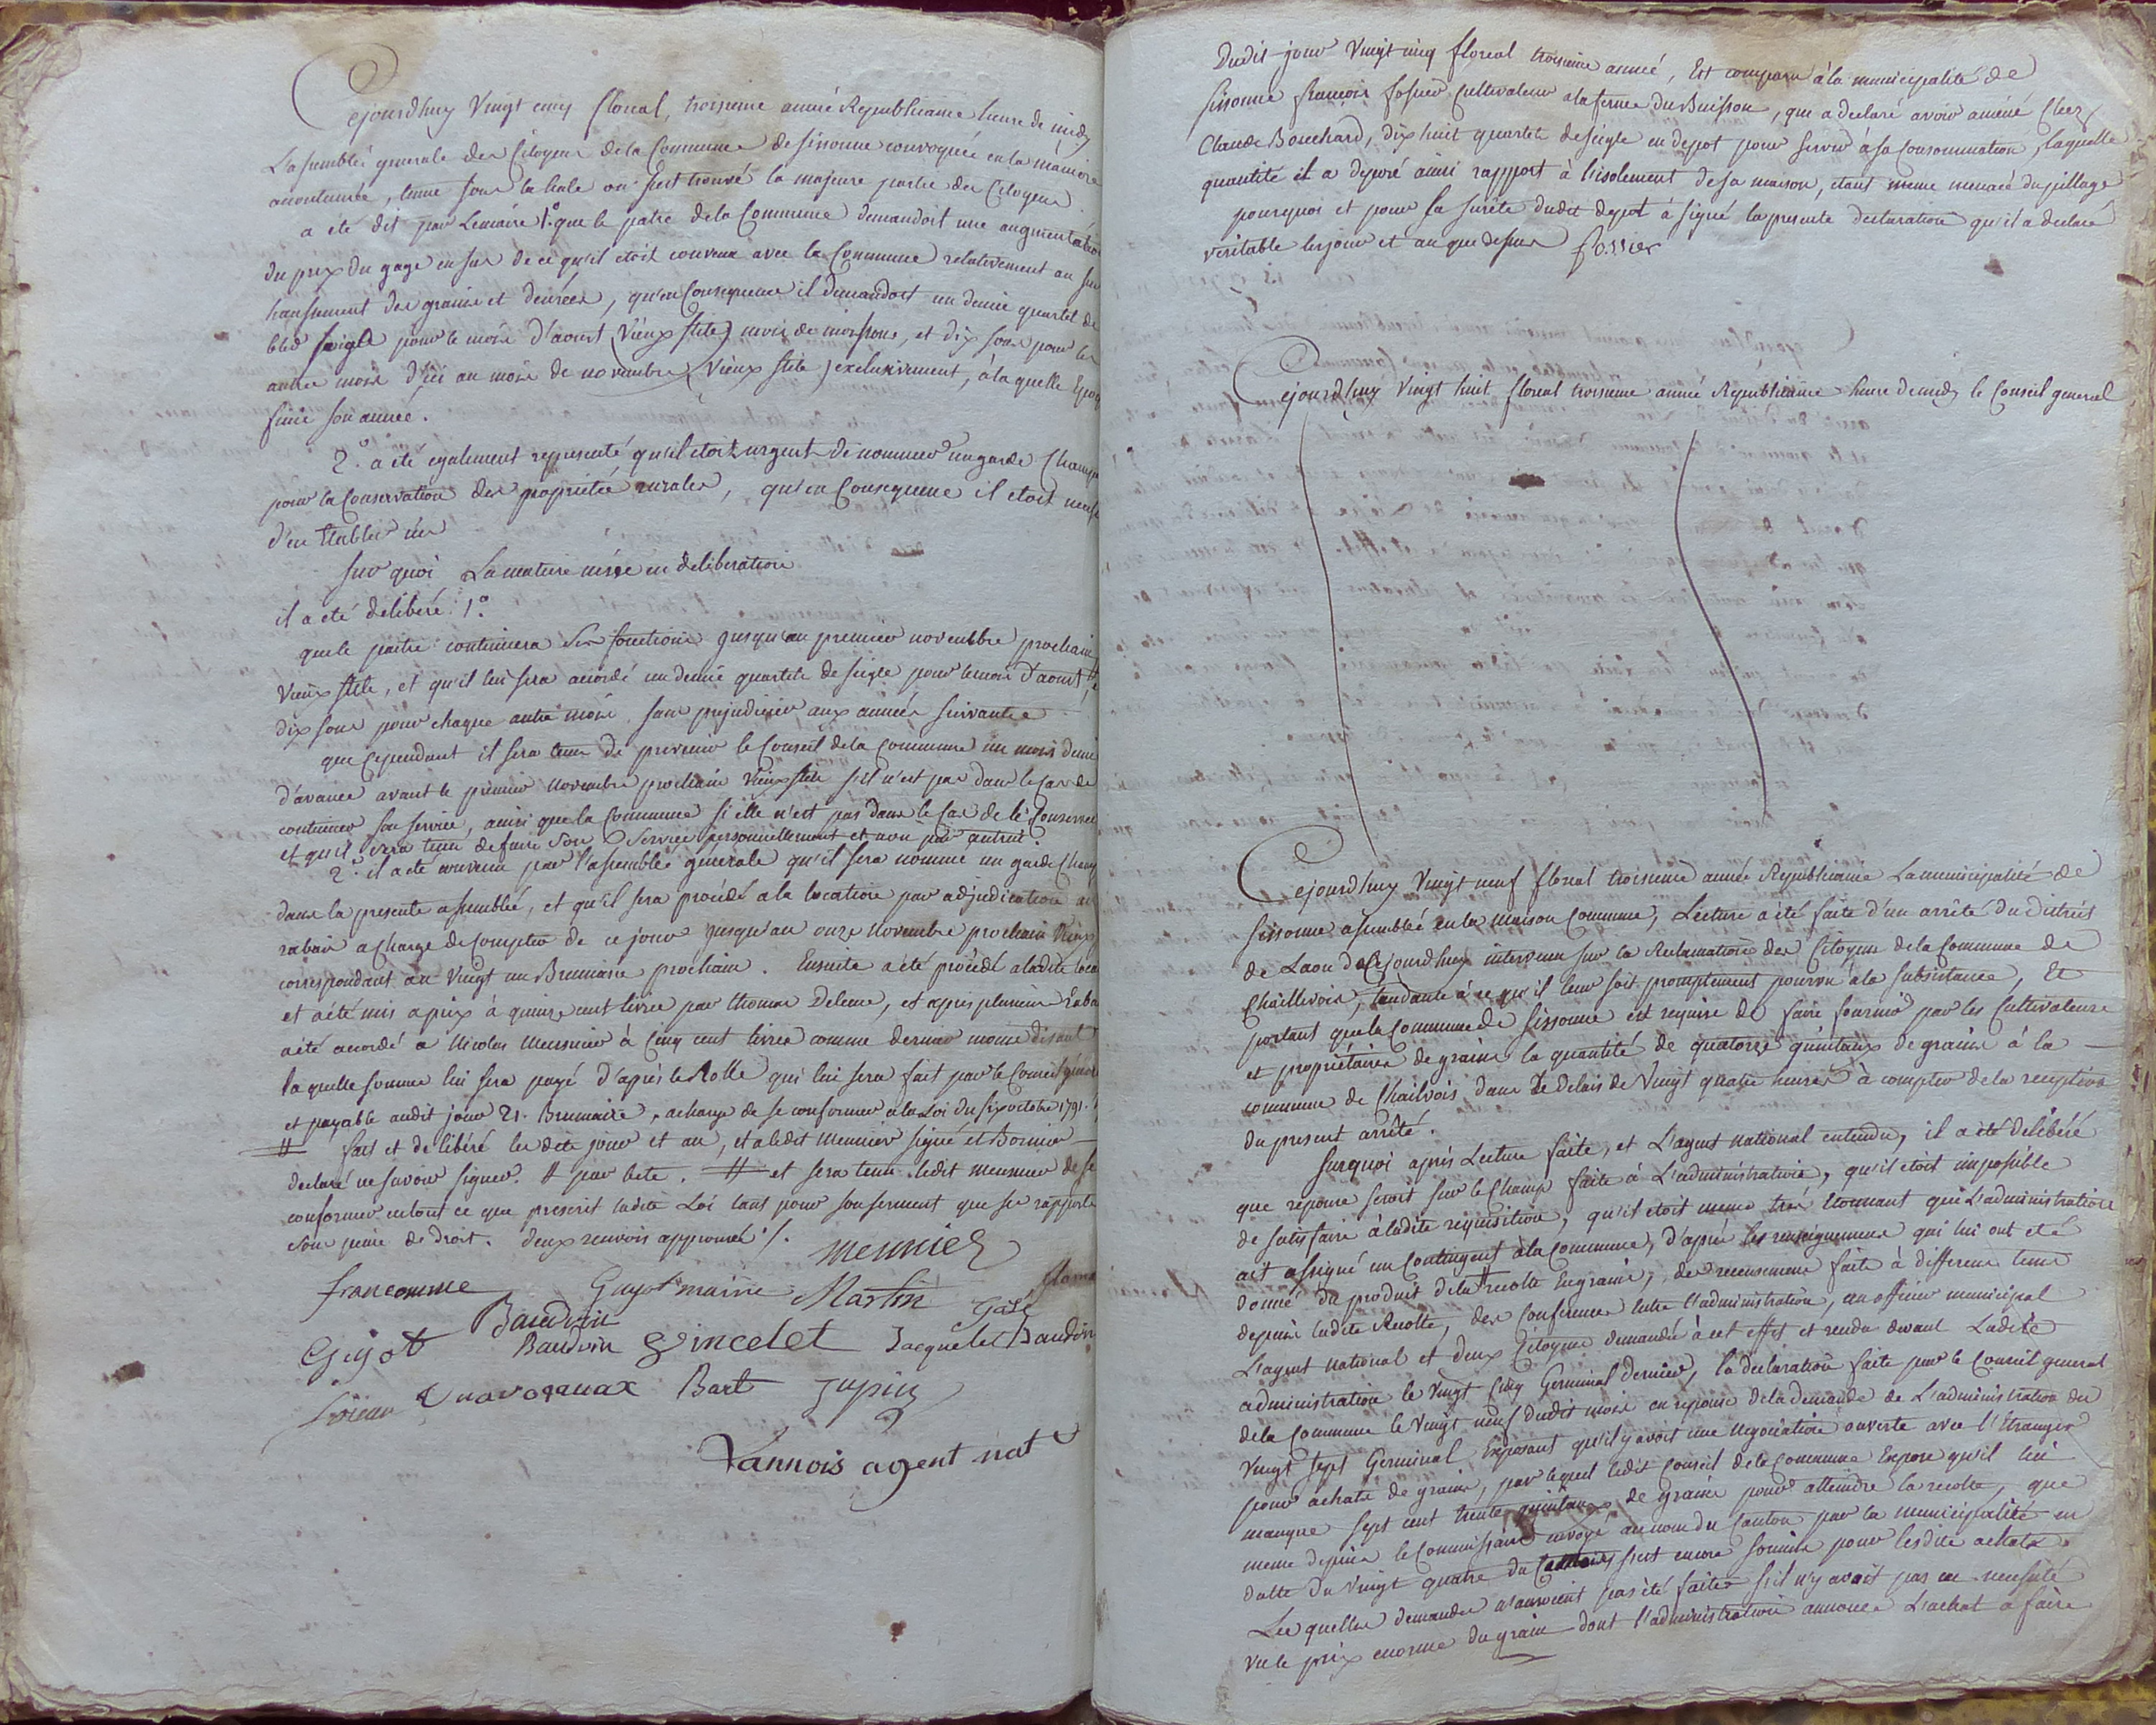 Cejourdhuy Vingt cinq floreal, troisieme année Republicaine heure de midy
L'assemblée generale des Citoyens de la Commune de sissonne convoquée en la maniere
accoutumée, tenue sous la hale ou s'est trouvé la majeure partie des Citoyens
a été dit par Lemaire 1.° que le patre de la Commune demandoit une augmentation
du prix du gage en sus de ce qu'il etoit convenu avec la Commune relativement au sur
haussement des grains et denrées, qu'en Consequence il demandoit un demie quartel de
bled seigle pour le mois d'aoust (vieux stile) mois de moissons, et dix sous pour les
autres mois d'ici au mois de novembre (vieux stile) exclusivement, à laquelle Epoq
finie son année.
2.° a été egalement representé qu'il etoit urgent de nommer un garde Champ
pour la Conservation des proprietés rurales, qu'en Consequence il etoit necess
d'en Etablir un
sur quoi La matiere mise en deliberation
il a été deliberé 1.°
que le patre continuera ses fonctions jusqu'au premier novembre prochain
vieux stile, et qu'il lui sera accordé un demie quartele de seigle pour le mois d'aoust, et
dix sous pour chaque autre mois sans prejudicier aux années suivantes
que Cependant il sera tenu de prevenir le Conseil de la Commune un mois demie
d'avance avant le premier novembre prochain vieux stile s'il n'est pas dans le Cas de
continuer son service, ainsi que la Commune si elle n'est pas dans le Cas de le Conserver
et qu'il sera tenu de faire son service personnellement et non par autrui.
2.° il a été convenu par l'assemblée generale qu'il sera nommé un garde Champ
dans la presente assemblée, et qu'il sera procédé a la location par adjudication au
rabais a charge de Compter de ce jour jusqu'au onze novembre prochain vieux
correspondant au Vingt un Brumaire prochain. Ensuite a été procédé a ladite loca
et a été mis a prix à quinze cent livres par thomas Deleme, et apres plusieurs Raba
a été accordé a Nicolas Meusnier à Cinq cent livres comme dernier moins disant
laquelle somme lui sera payé d'après le Rolle qui lui sera fait par le Conseil géner
et payable audit jour 21. Brumaire, acharge de se conformer a la Loi du six octobre 1791.
# fait et deliberé les dits jour et an, et a ledit Meunier signé et Bornier
declaré ne savoir signer. # par bete. # et sera tenu ledit Meunier de se
conformer en tout ce que prescrit ladite Loi tant pour son serment que ses rapports
sous peine de droit. deux renvois approuvés /.
Meunier
francomme Guyot maire Martin
Baudoin Gasé
Guyot Baudoin Gincelet Jacquelet Baudoin
Bart Jupin
Vannois agent nat
Dudit jour Vingt cinq floreal troisieme année, Est comparu à la municipalité de
sissonne françois fossier Cultivateur a la ferme du Buisson, qui a declaré avoir amené Chez
Claude Bouchard, dix huit quartels de seigle en depot pour servir à sa Consommation, laquelle
quantité il a deposé ainsi rapport à l'isolement de sa maison, etant meme menacé du pillage
pourquoi et pour la sureté dudit depot à signé la presente declaration qu'il a declaré
veritable les jour et an que dessus fossier
Cejourdhuy Vingt huit floreal troisieme année Republicaine heure de midy le Conseil general
Cejourdhuy Vingt neuf floreal troisieme année Republicaine La municipalité de
Sissonne assemblée en la maison Commune, Lecture a été faite d'un arrêté du District
de Laon de Cejourdhuy intervenu sur la Reclamation des Citoyens de la Commune de
Chaillevois, tendante à ce qu'il leur soit promptement pourvu à la subsistance, Et
portant que la Commune de Sissonne est requise de faire fournir par les Cultivateurs
et propriétaires de grains la quantité de quatorze quintaux de grains à la
commune de Chailvois dans le delais de Vingt quatre heures à compter de la reception
du present arrêté.
Sur quoi après Lecture faite, et L'agent national entendu, il a été deliberé
que reponse seroit sur le Champ faite à L'administration, qu'il etoit impossible
de satisfaire à ladite requisition, qu'il etoit meme tres Etonnant que L'administration
ait assigné un Contingent à la Commune, d'après les renseignemens qui lui ont eté
donné du produit de la recolte En grains, des recensemens faits à differens tems
depuis ladite Recolte, des Conferences Entre l'administration, un officier municipal
L'agent National et deux Citoyens demandés à cet effet et rendu devant Ladite
administration le Vingt Cinq Germinal dernier, la declaration faite par le Conseil general
de la Commune le Vingt neuf dudit mois en reponse de la demande de L'administration du
Vingt sept Germinal, Exposant qu'il y avoit une negociation ouverte avec l'Etranger
pour achats de grains, par lequel ledit Conseil de la Commune Expose qu'il lui
manque sept cent trente quintaux de grains pour atteindre la recolte, que
meme depuis le Commissaire envoyé au nom du Canton par la municipalité en
datte du Vingt quatre du s'est encore soumis pour lesdits achats
Lesquelles demandes n'auroient pas été faites s'il n'y avoit pas eu necessité
vu le prix enorme du grain dont l'administration annonce L'achat a faire